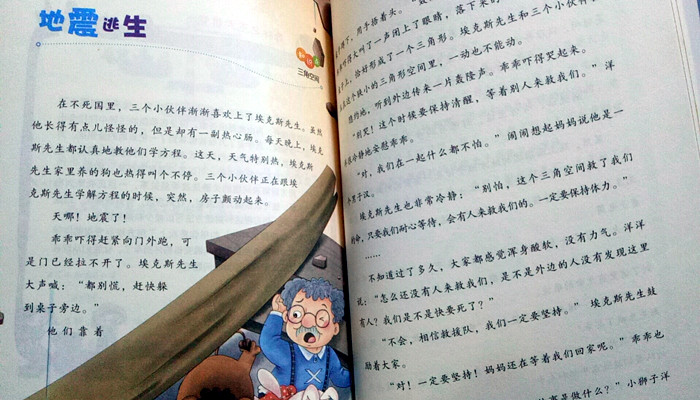 地震逃生
三角空间
在不死国里，三个小伙伴渐渐喜欢上了埃克斯先生。虽然
他长得有点儿怪怪的，但是却有一副热心肠。每天晚上，埃克
斯先生都认真地教他们学方程。这天，天气特别热，埃克斯
先生家里养的狗也热得叫个不停。三个小伙伴正在跟埃
克斯先生学解方程的时候，突然，房子颤动起来。
天哪！地震了！
乖乖吓得赶紧向门外跑，可
是门已经拉不开了。埃克斯先生
大声喊：“都别慌，赶快躲
到桌子旁边。”
他们靠着
下，用手捂着头。
吓得大叫了一声闭上了眼睛，落下来的
上，恰好形成了一个三角形。埃克斯先生和三个小伙伴
在这个狭小的三角形空间里，一动也不能动。
听到外边传来一片轰隆声。乖乖吓得哭起来。
“别哭！这个时候要保持清醒，等着别人来救我们。”洋
洋冷静地安慰乖乖。
“对，我们在一起什么都不怕。”闹闹想起妈妈说他是一
个男子汉。
埃克斯先生也非常冷静：“别怕，这个三角空间救了我们
的命，只要我们耐心等待，会有人来救我们的。一定要保持体力。”
……
不知道过了多久，大家都感觉浑身酸软，没有力气。洋洋
说：“怎么还没有人来救我们，是不是外边的人没有发现这里
有人？我们是不是快要死了？”
“不会，相信救援队，我们一定要坚持。”埃克斯先生鼓
励着大家。
“对！一定要坚持！妈妈还在等着我们回家呢。”乖乖也
是做什么？”小狮子洋